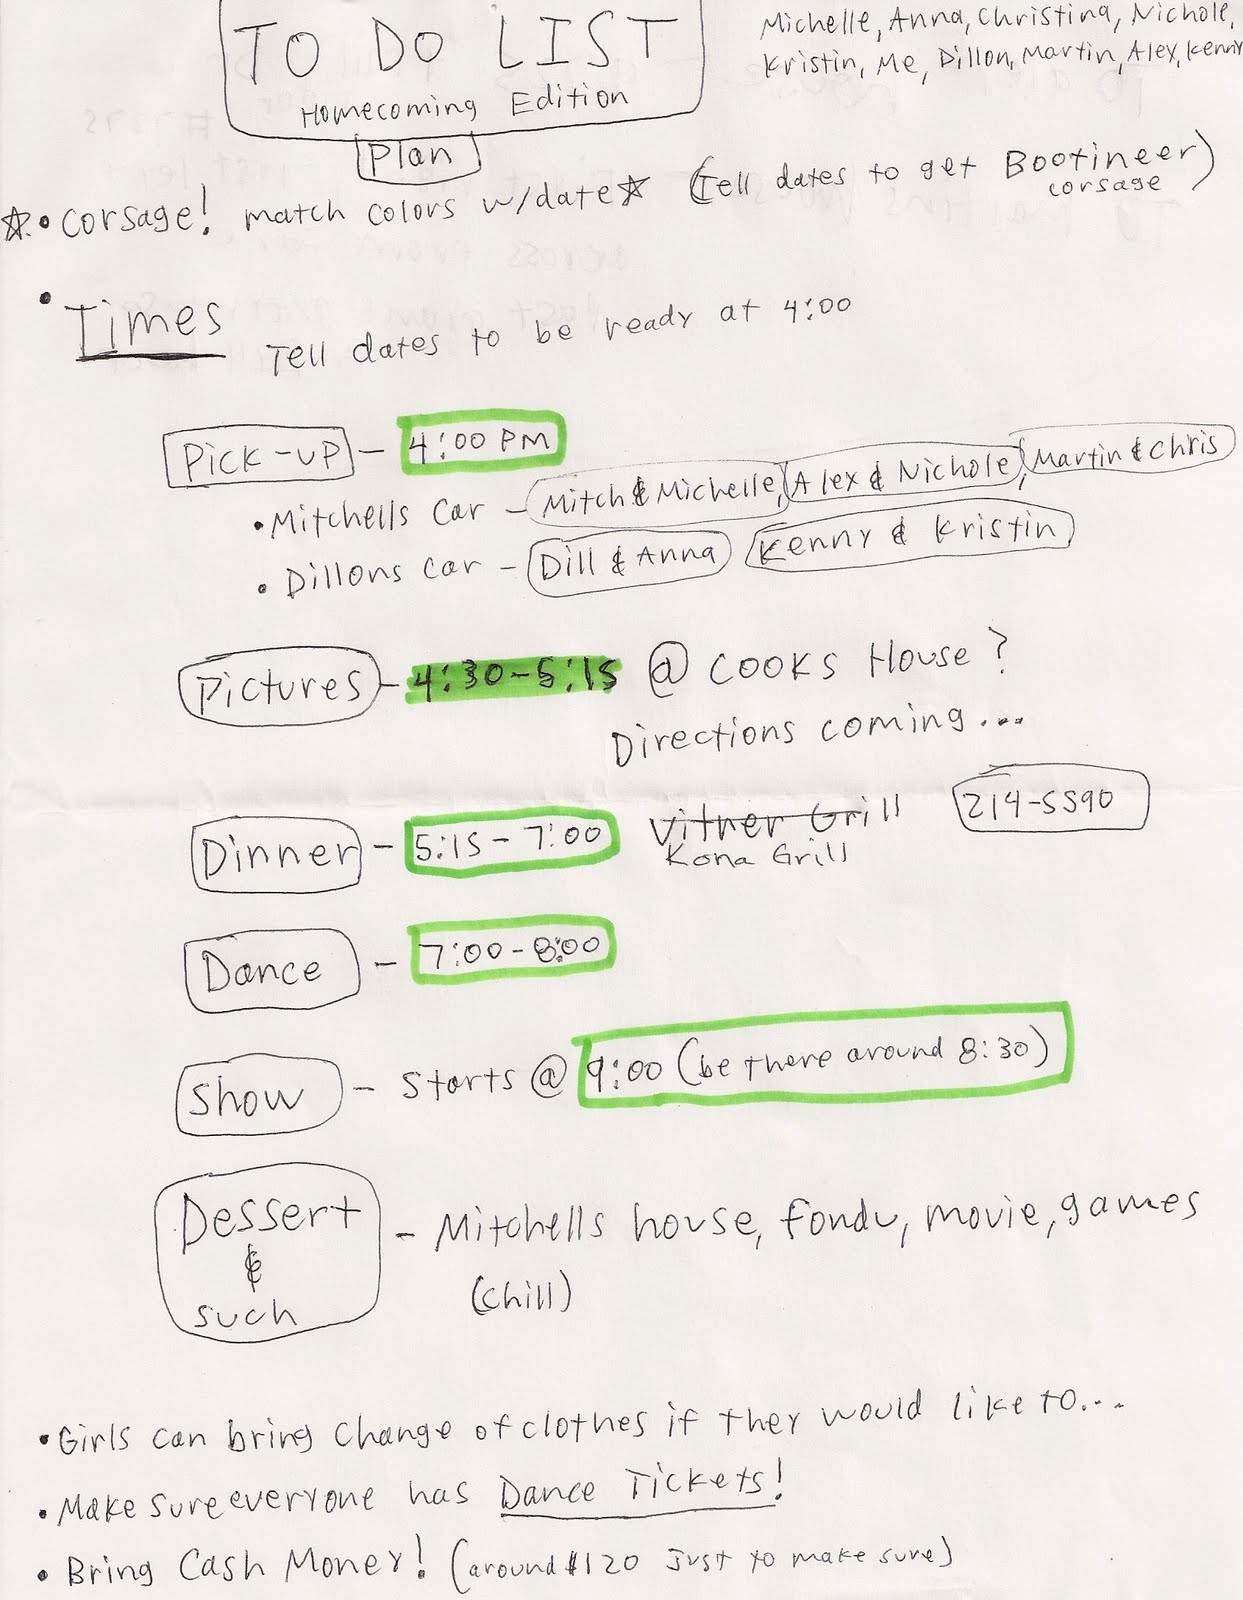 TO DO LIST
Homecoming Edition
Plan
Michelle, Anna, Christina, Nichole,
Kristin, Me, Dillon, Martin, Alex, Kenny
☆ • Corsage! match colors w/date ☆ (Tell dates to get Bootineer)
corsage
• Times
Tell dates to be ready at 4:00
Pick-up – 4:00 PM
• Mitchells Car – Mitch & Michelle, Alex & Nichole, Martin & Chris
• Dillons car – Dill & Anna Kenny & Kristin
Pictures – 4:30-5:15 @ Cooks House?
Directions coming...
Dinner – 5:15 - 7:00 Vitner Grill 214-5590
Kona Grill
Dance – 7:00 - 8:00
Show – Starts @ 9:00 (be there around 8:30)
Dessert & such – Mitchells house, fondu, movie, games
(chill)
• Girls can bring change of clothes if they would like to...
• Make sure everyone has Dance Tickets!
• Bring Cash Money! (around $120 just to make sure)